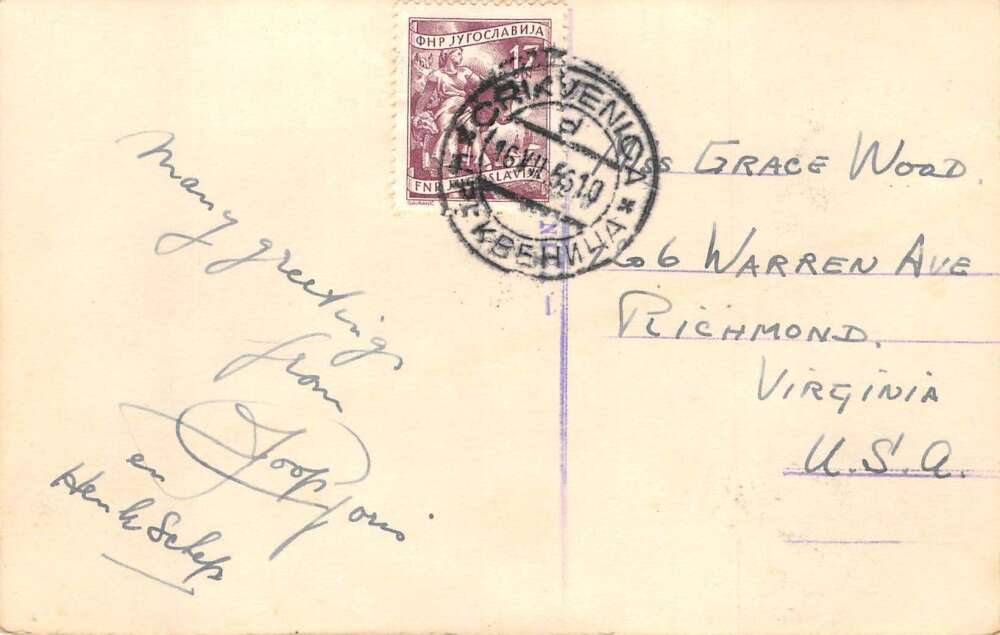 ФНР ЈУГОСЛАВИЈА
17
DIN
FNR JUGOSLAVIJA
CRIKVENICA
d
16.VII.56.10
ЦРИКВЕНИЦА
Many greetings
from
Joop Joris
en
Henk Schep
Miss GRACE WOOD.
606 WARREN AVE
RICHMOND.
VIRGINIA
U.S.A.